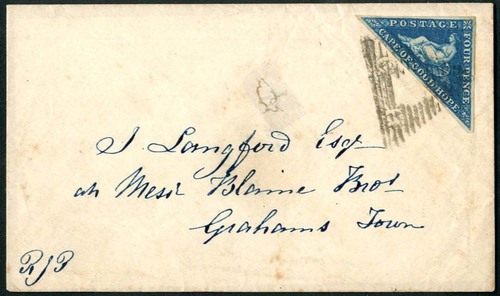 POSTAGE
CAPE OF GOOD HOPE
FOUR PENCE
J Langford Esqr
at Messrs Blaine Bros
Grahams Town